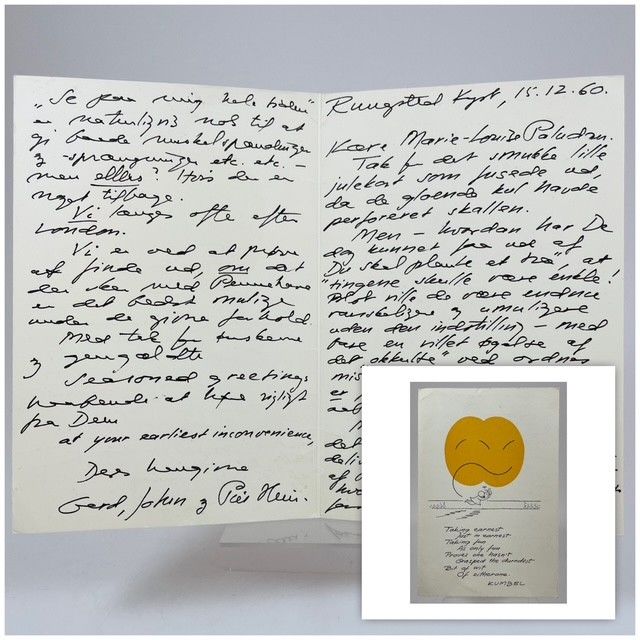 "Se paa mig hele tiden"
er naturligvis nok til at
gi baade muskelspændinger
og -sprængninger etc. etc. –
men ellers? Hvis der er
noget tilbage.
Vi længes ofte efter
London.
Vi er ved at prøve
at finde ud, om det
der sker med
er det bedst mulige
under de givne forhold.
Med tak for ønskerne
og gengældte
seasoned greetings
haabende at høre rigtigt
fra Dem
at your earliest inconvenience,
Deres hengivne
Gerd, John & Piet Hein.
Rungsted Kyst, 15.12.60.
Kære Marie-Louise Paludan.
Tak for det smukke lille
julekort som fusede ud,
da de gloende kul havde
perforeret skallen.
Men – hvordan har De
dog kunnet faa ud af
"Du skal plante et træ" at
"tingene skulle være enkle!
Blot ville de være endnu
vanskeligere og umuligere
uden den indstilling – med
bare en villet øgelse af
"det okkulte" ved ordnes
mis
er
Taking earnest
Just as earnest
Taking fun
As only fun
Proves one hasn't
Grasped the durndest
Bit of wit
Of eitherone.
KUMBEL